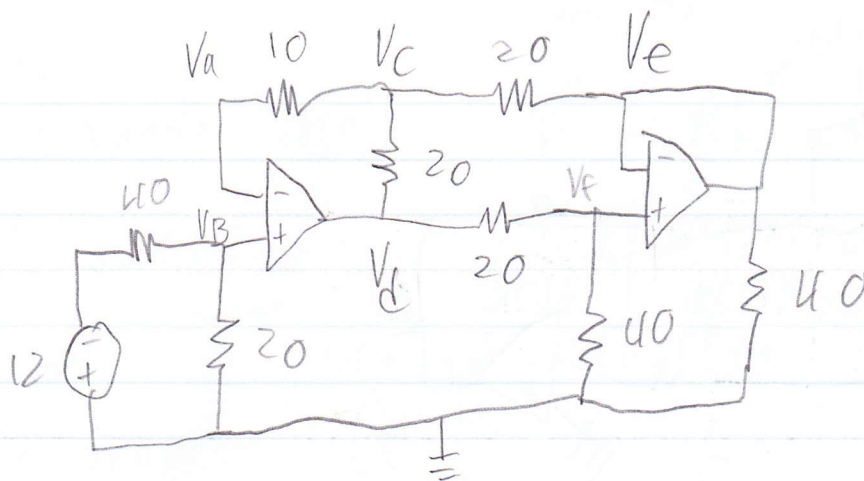 Va 10 Vc 20 Ve
-
20
40 VB - Vf
+ +
Vd 20 40
- 20 40
12 +